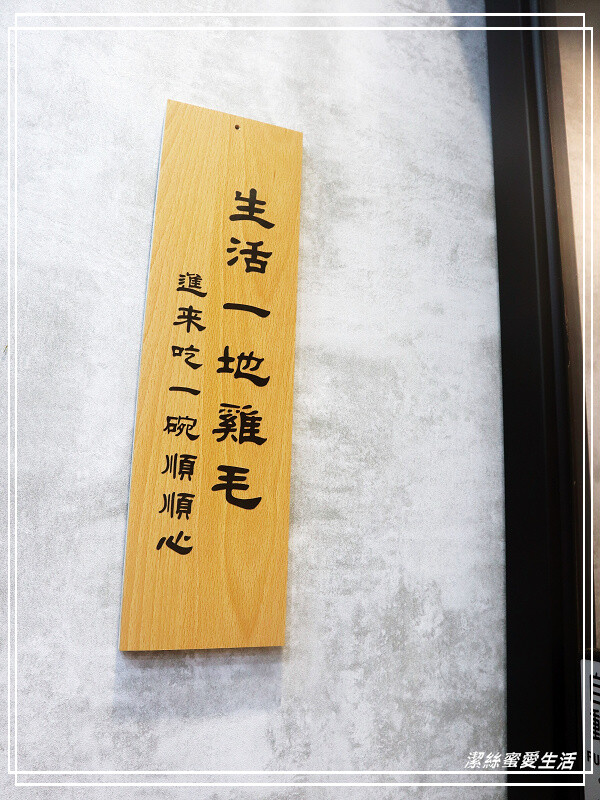 生活一地雞毛
進來吃一碗順順心
潔絲蜜愛生活